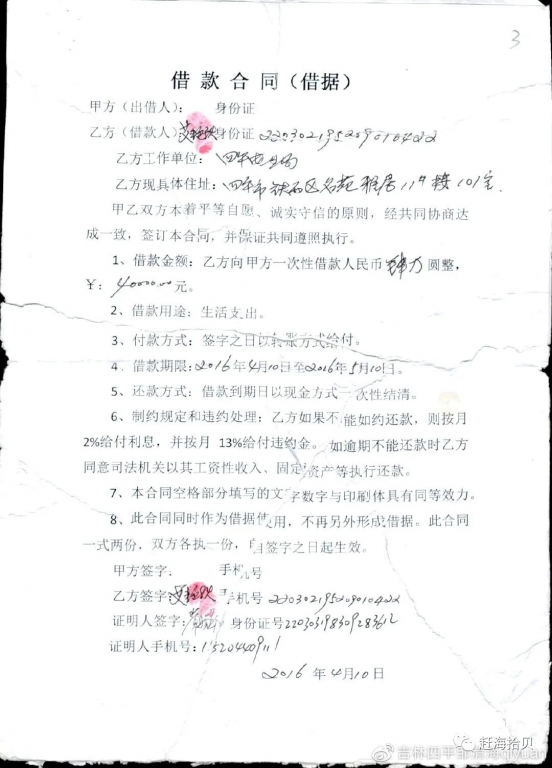 3
借款合同（借据）
甲方（出借人）： 身份证
乙方（借款人） 身份证
乙方工作单位：四平
乙方现具体住址：四平市铁西区名苑雅居11#楼101室.
甲乙双方本着平等自愿、诚实守信的原则，经共同协商达
成一致，签订本合同，并保证共同遵照执行。
1、借款金额：乙方向甲方一次性借款人民币 圆整，
￥：40000.00元。
2、借款用途：生活支出。
3、付款方式：签字之日以转账方式给付。
4、借款期限：2016年4月10日至2016年5月10日。
5、还款方式：借款到期日以现金方式一次性结清。
6、制约规定和违约处理：乙方如果不能如约还款，则按月
2%给付利息，并按月 13%给付违约金。如逾期不能还款时乙方
同意司法机关以其工资性收入、固定资产等执行还款。
7、本合同空格部分填写的文字数字与印刷体具有同等效力。
8、此合同同时作为借据使用，不再另外形成借据。此合同
一式两份，双方各执一份，自签字之日起生效。
甲方签字： 手机号
乙方签字： 手机号
证明人签字： 身份证号
证明人手机号：
2016年4月10日
赶海拾贝
吉林四平